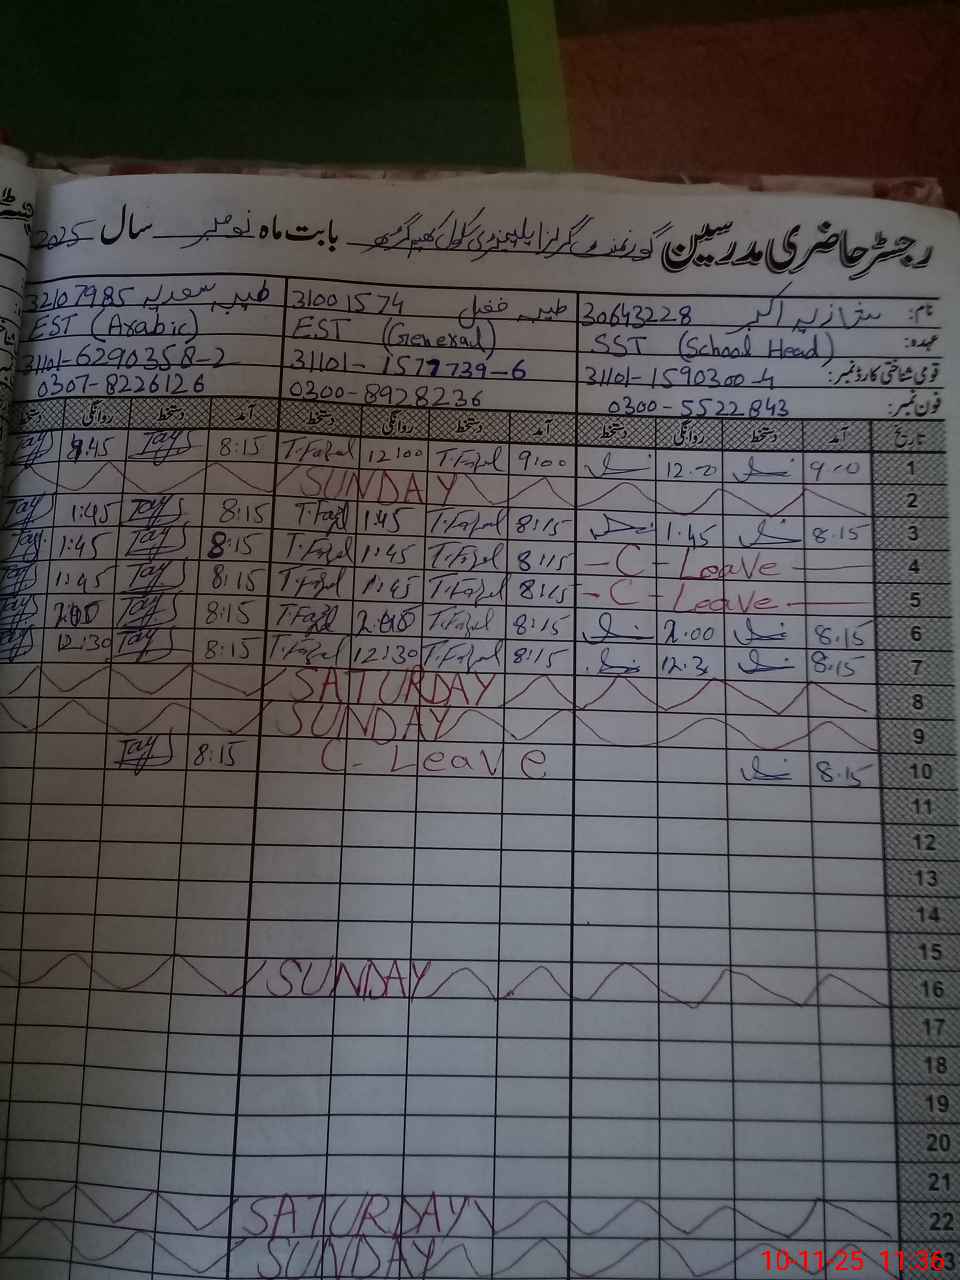 رجسٹر حاضری مدرسین گورنمنٹ گرلز ایلیمنٹری سکول بابت ماہ نومبر سال 2025
نام: شازیہ اکبر 30643228 طیبہ فضل 31001574 طیبہ سعدیہ 32107985
عہدہ: SST (School Head) EST (General) EST (Arabic)
قومی شناختی کارڈ نمبر: 31101-1590300-4 31101-1577739-6 31101-6290358-2
فون نمبر: 0300-5522843 0300-8928236 0307-8226126
تاریخ آمد دستخط روانگی دستخط آمد دستخط روانگی دستخط آمد دستخط روانگی دستخط
1 9.00 12.00 9:00 T.Fazal 12:00 T.Fazal 8:15 Tay 45 Tay
2 SUNDAY
3 8.15 1.45 8:15 T.Fazal 1:45 T.Fazal 8:15 Tay 1:45 Tay
4 - C - Leave 8:15 T.Fazal 1:45 T.Fazal 8:15 Tay 1:45 Tay
5 - C - Leave 8:15 T.Fazal 1:45 T.Fazal 8:15 Tay 1:45 Tay
6 8.15 2.00 8:15 T.Fazal 2:00 T.Fazal 8:15 Tay 2:00 Tay
7 8:15 12.3 8:15 T.Fazal 12:30 T.Fazal 8:15 Tay 12:30 Tay
8 SATURDAY
9 SUNDAY
10 8.15 C - Leave 8:15 Tay
11
12
13
14
15
16 SUNDAY
17
18
19
20
21
22 SATURDAY
3 SUNDAY
10-11-25 11:36